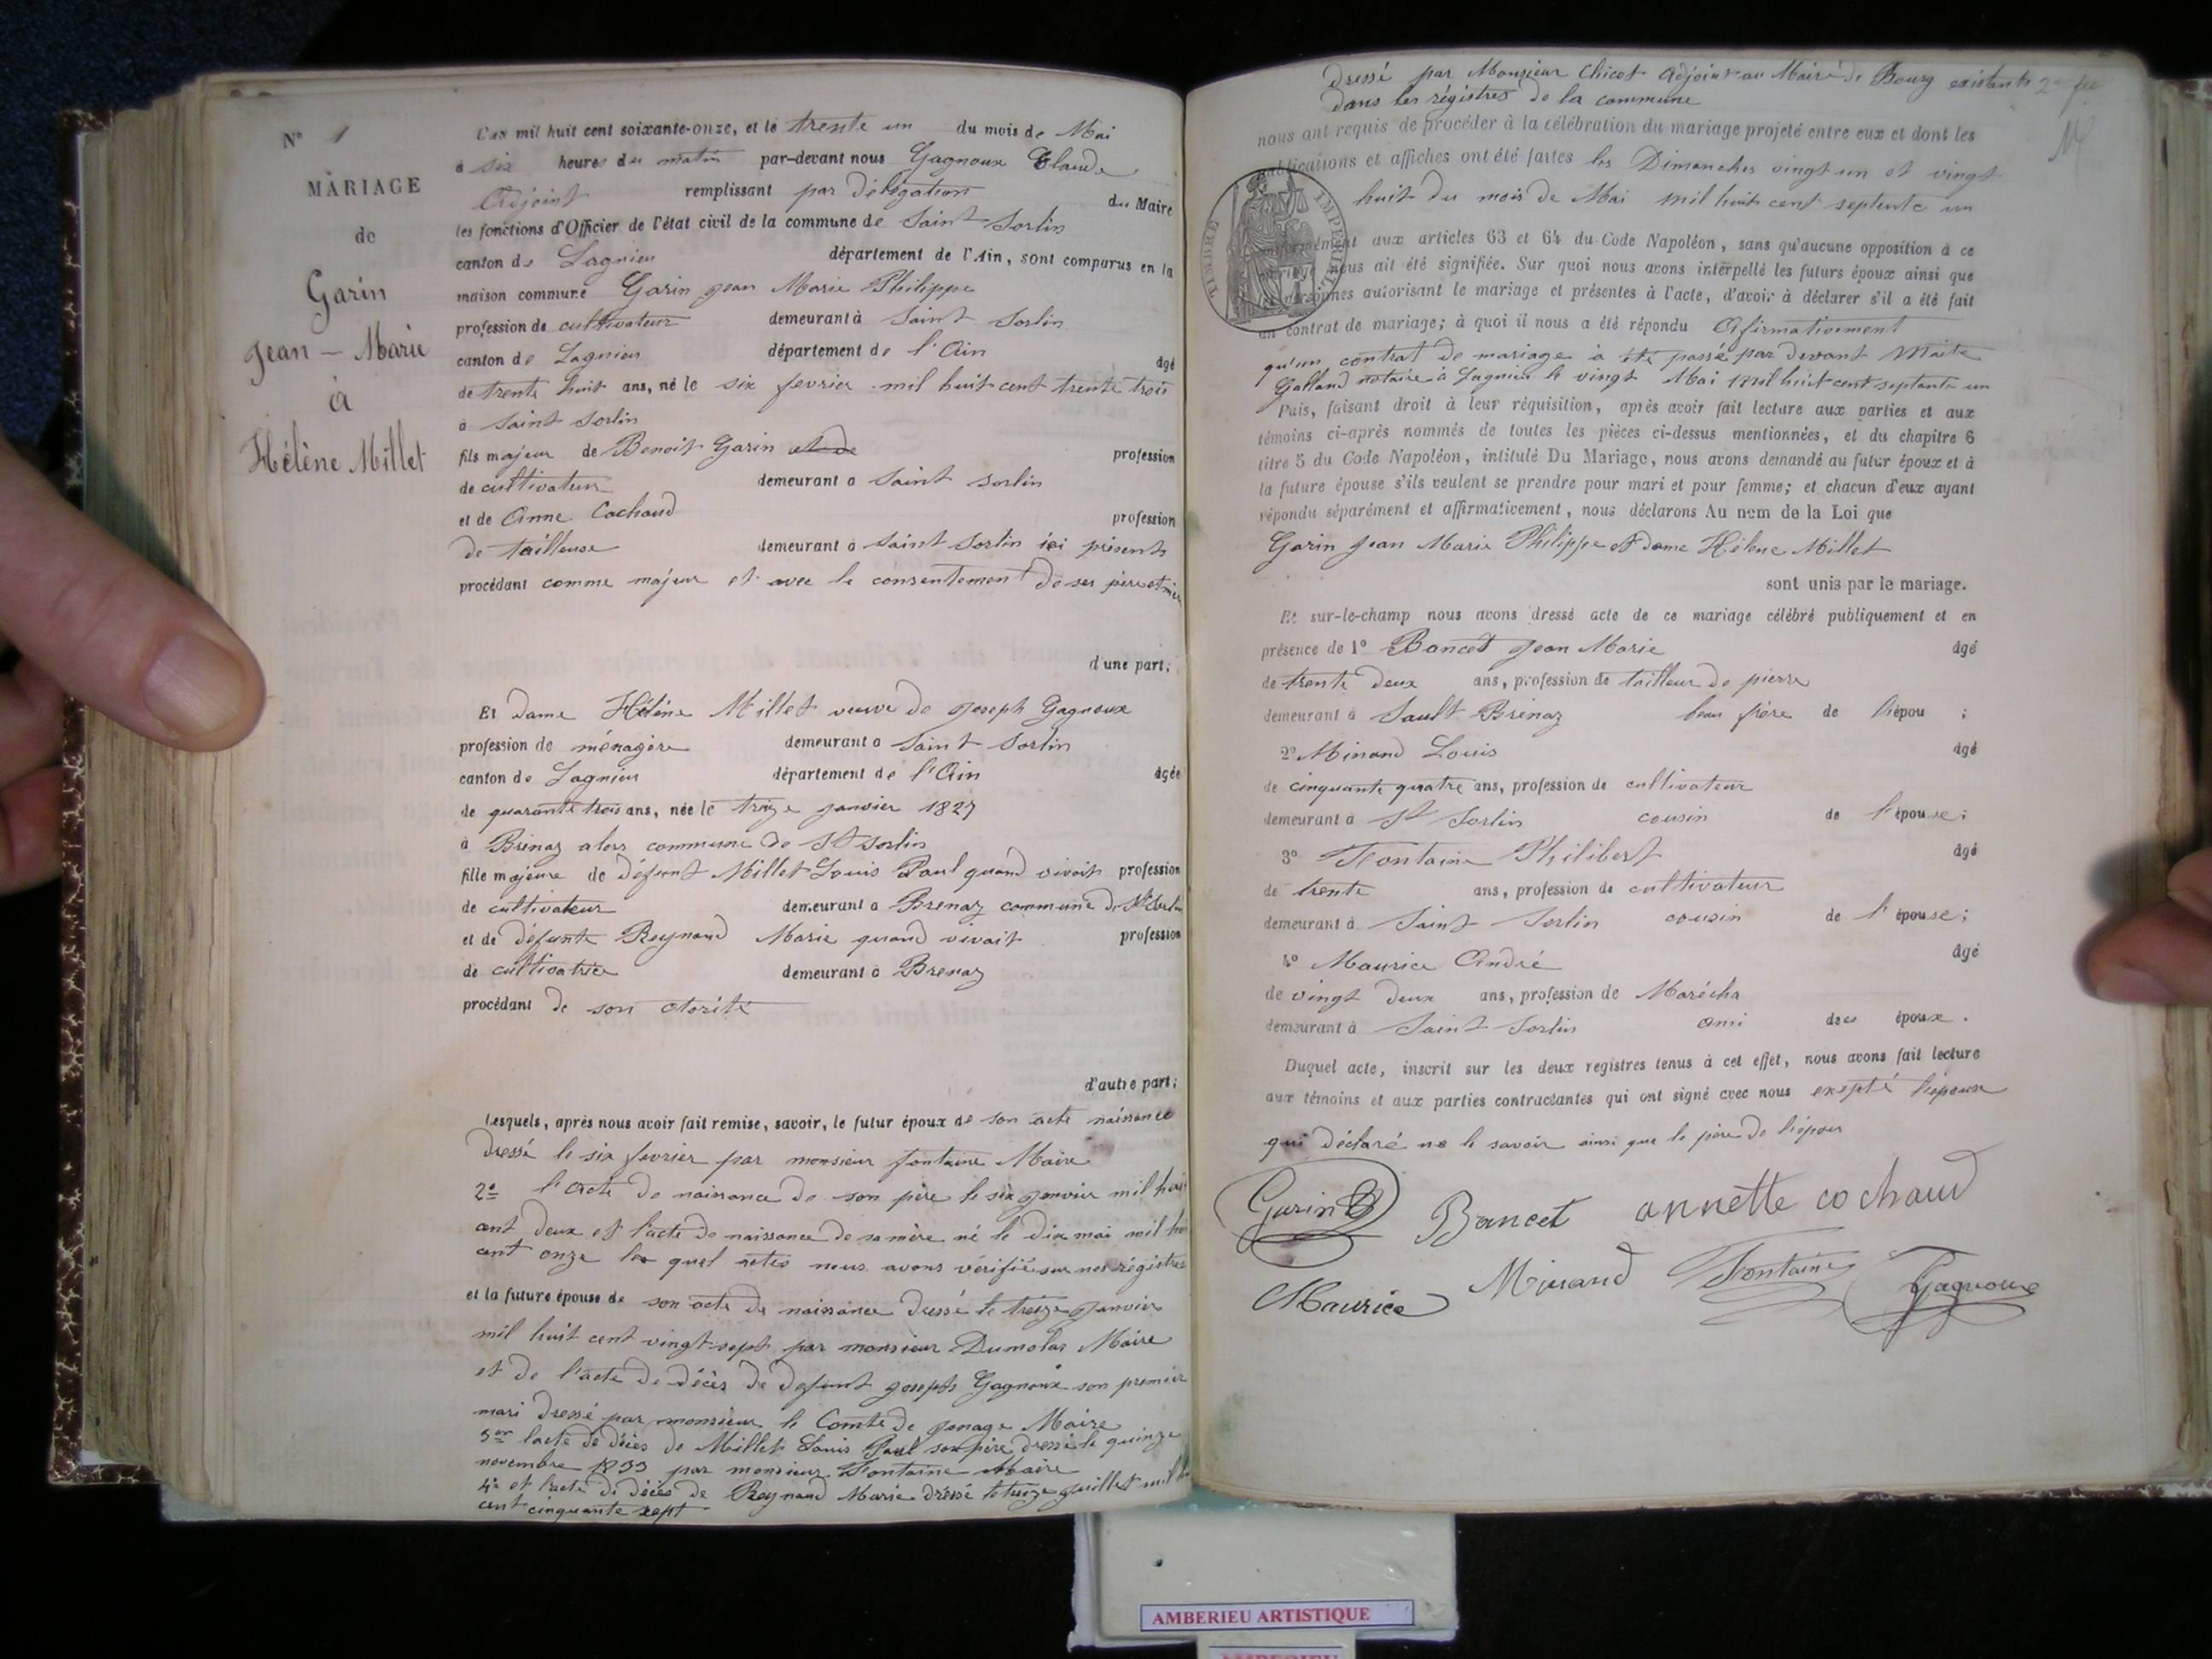 N° 1
MARIAGE
de
Garin
Jean - Marie
à
Hélène Millet
L'an mil huit cent soixante-onze, et le trente un du mois de Mai
à six heures du matin par-devant nous Gagnoux Claude
Adjoint remplissant par délégation du Maire
les fonctions d'Officier de l'état civil de la commune de Saint Sorlin
canton de Lagnieu département de l'Ain, sont comparus en la
maison commune Garin Jean Marie Philippe
profession de cultivateur demeurant à Saint Sorlin
canton de Lagnieu département de l'Ain âgé
de trente huit ans, né le six fevrier mil huit cent trente trois
à Saint Sorlin
fils majeur de Benoit Garin et de profession
de cultivateur demeurant à Saint Sorlin
et de Anne Cochaud profession
de tailleuse demeurant à Saint Sorlin ici présents
procédant comme majeur et avec le consentement de ses père et mère
d'une part;
Et dame Hélène Millet veuve de Joseph Gagnoux
profession de ménagère demeurant à Saint Sorlin
canton de Lagnieu département de l'Ain âgée
de quarante trois ans, née le treize janvier 1827
à Brénaz alors commune de St Sorlin
fille majeure de défunt Millet Louis Paul quand vivait profession
de cultivateur demeurant à Brenaz commune de St Sorlin
et de défunte Reynaud Marie quand vivait profession
de cultivatrice demeurant à Brenaz
procédant de son otorité
d'autre part;
Lesquels, après nous avoir fait remise, savoir, le futur époux de son acte naissance
dressé le six fevrier par monsieur fontaine Maire
2° l'acte de naissance de son père le six janvier mil huit
cent deux et l'acte de naissance de sa mère né le dix mai mil hui
cent onze les quel actes nous avons vérifié sur nos régistres
et la future épouse de son acte de naissance dressé le treize janvier
mil huit cent vingt-sept par monsieur Dumolar Maire
et de l'acte de décès de défunt Joseph Gagnoux son premier
mari dressé par monsieur le Comte de Jonage Maire
3me l'acte de décès de Millet Louis Paul son père dressé le quinze
novembre 1833 par monsieur Fontaine Maire
4° et l'acte de décès de Reynaud Marie dressé le treize juillet mil
cent cinquante sept
dressé par Monsieur Chicot Adjoint au Maire de Bourg existants
dans les régistres de la commune
nous ont requis de procéder à la célébration du mariage projeté entre eux et dont les
publications et affiches ont été faites les Dimanches vingt un et vingt
huit du mois de Mai mil huit cent septente un
TIMBRE IMPERIAL
conformément aux articles 63 et 64 du Code Napoléon, sans qu'aucune opposition à ce
mariage nous ait été signifiée. Sur quoi nous avons interpellé les futurs époux ainsi que
les personnes autorisant le mariage et présentes à l'acte, d'avoir à déclarer s'il a été fait
un contrat de mariage; à quoi il nous a été répondu Afirmativement
qu'un contrat de mariage a été passé par devant Maite
Galland notaire à Lagnieu le vingt Mai mil huit cent septante un
Puis, faisant droit à leur réquisition, après avoir fait lecture aux parties et aux
témoins ci-après nommés de toutes les pièces ci-dessus mentionnées, et du chapitre 6
titre 5 du Code Napoléon, intitulé Du Mariage, nous avons demandé au futur époux et à
la future épouse s'ils veulent se prendre pour mari et pour femme; et chacun d'eux ayant
répondu séparément et affirmativement, nous déclarons Au nom de la Loi que
Garin Jean Marie Philippe et dame Hélène Millet
sont unis par le mariage.
Et sur-le-champ nous avons dressé acte de ce mariage célébré publiquement et en
présence de 1° Bancet Jean Marie âgé
de trente deux ans, profession de tailleur de pierre
demeurant à Sault Brénaz beau frère de l'épou ;
2° Minand Louis âgé
de cinquante quatre ans, profession de cultivateur
demeurant à St Sorlin cousin de l'épouse;
3° Fontaine Philibert âgé
de trente ans, profession de cultivateur
demeurant à Saint Sorlin cousin de l'épouse;
4° Maurice André âgé
de vingt deux ans, profession de Marécha
demeurant à Saint Sorlin ami des époux.
Duquel acte, inscrit sur les deux registres tenus à cet effet, nous avons fait lecture
aux témoins et aux parties contractantes qui ont signé avec nous exepté l'épouse
qui déclaré ne le savoir ainsi que le père de l'épour
Garin Bancet annette cochaud
Maurice Minand Fontaine Gagnoux
AMBERIEU ARTISTIQUE
AMBERIEU